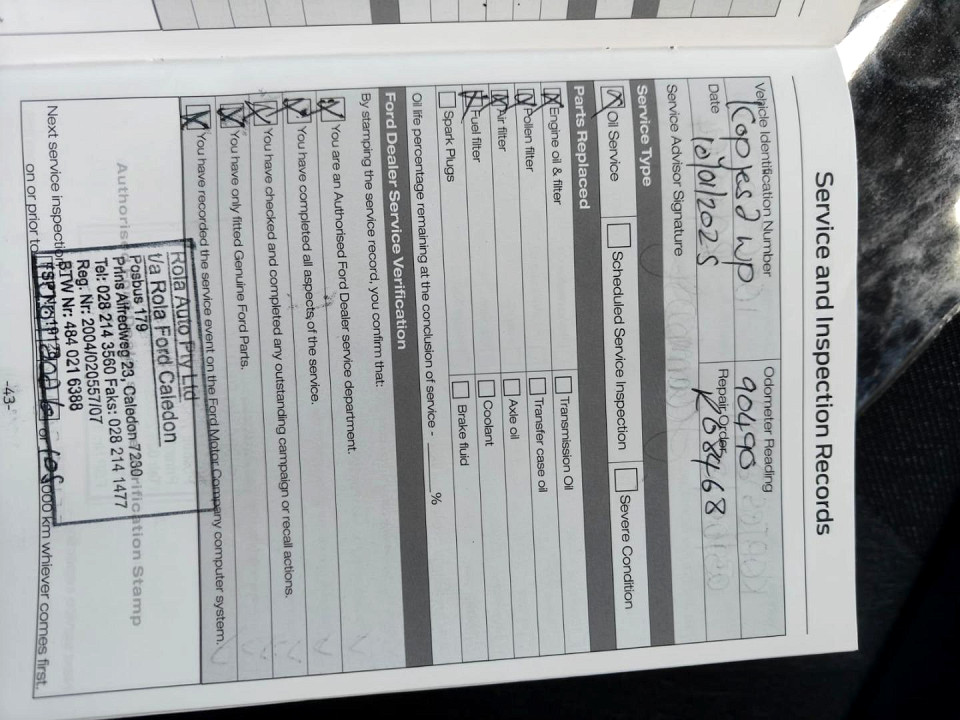 Service and Inspection Records
Vehicle Identification Number
Odometer Reading
90490
Date
10/01/2025
Repair Order
R084468
Service Advisor Signature
Service Type
Oil Service
Scheduled Service Inspection
Severe Condition
Parts Replaced
Engine oil & filter
Transmission Oil
Pollen filter
Transfer case oil
Air filter
Axle oil
Fuel filter
Coolant
Spark Plugs
Brake fluid
Oil life percentage remaining at the conclusion of service - %
Ford Dealer Service Verification
By stamping the service record, you confirm that:
You are an Authorised Ford Dealer service department.
You have completed all aspects of the service.
You have checked and completed any outstanding campaign or recall actions.
You have only fitted Genuine Ford Parts.
You have recorded the service event on the Ford Motor Company computer system.
Rola Auto Pty Ltd
t/a Rola Ford Caledon
Posbus 179
Prins Alfredweg 23 Caledon 7230
Tel: 028 214 3560 Faks: 028 214 1477
Reg. Nr: 2004/020557/07
BTW Nr: 484 021 6388
Next service inspection
on or prior to or 000 km whiever comes first.
-43-